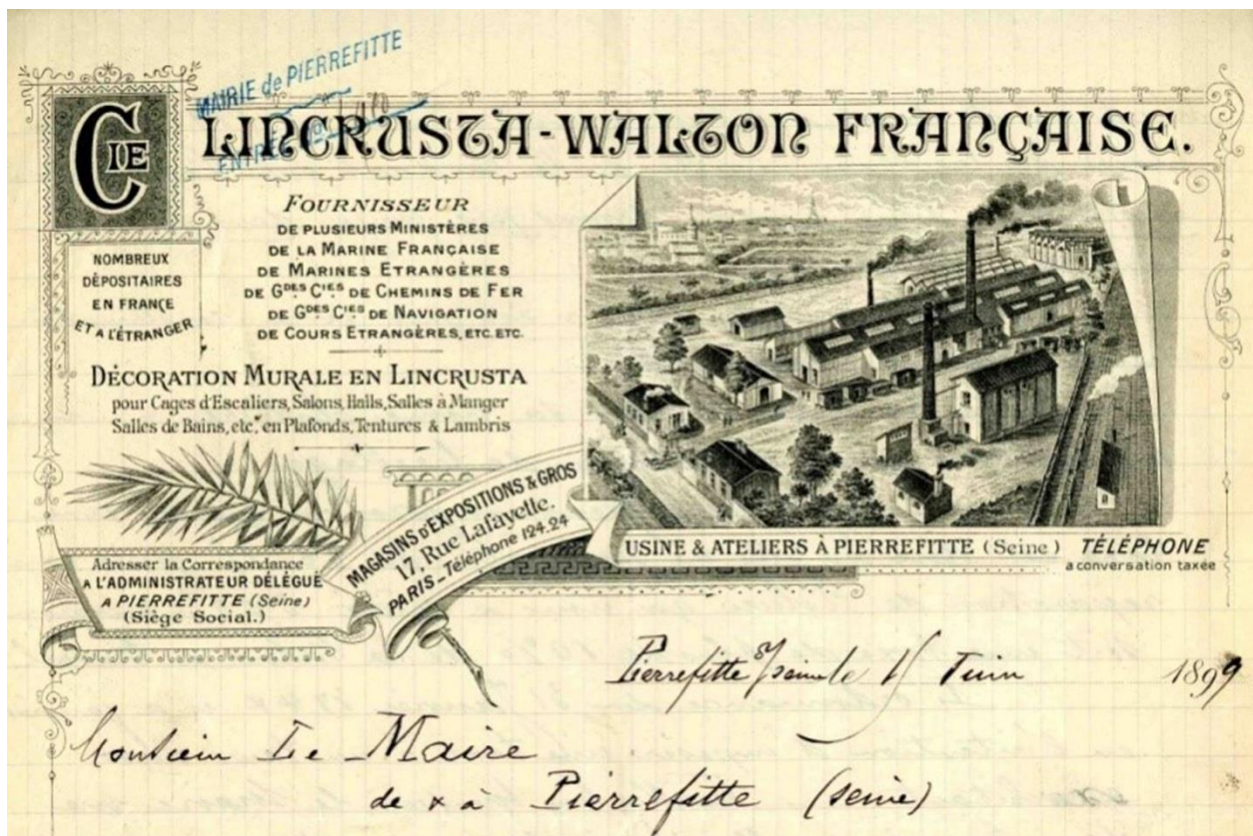 MAIRIE de PIERREFITTE
ENTRÉE
CIE LINCRUSTA-WALTON FRANÇAISE.
NOMBREUX
DÉPOSITAIRES
EN FRANCE
ET A L'ÉTRANGER
FOURNISSEUR
DE PLUSIEURS MINISTÈRES
DE LA MARINE FRANÇAISE
DE MARINES ETRANGÈRES
DE GDES CIES DE CHEMINS DE FER
DE GDES CIES DE NAVIGATION
DE COURS ETRANGÈRES, ETC. ETC.
DÉCORATION MURALE EN LINCRUSTA
pour Cages d'Escaliers, Salons, Halls, Salles à Manger
Salles de Bains, etc, en Plafonds, Tentures & Lambris
MAGASINS D'EXPOSITIONS & GROS
17, Rue Lafayette.
PARIS_Téléphone 124.24
Adresser la Correspondance
A L'ADMINISTRATEUR DÉLÉGUÉ
A PIERREFITTE (Seine)
(Siège Social.)
USINE & ATELIERS À PIERREFITTE (Seine)
TÉLÉPHONE
a conversation taxée
Pierrefitte s/seine le Juin 1899
Monsieur Le Maire
de x à Pierrefitte (seine)